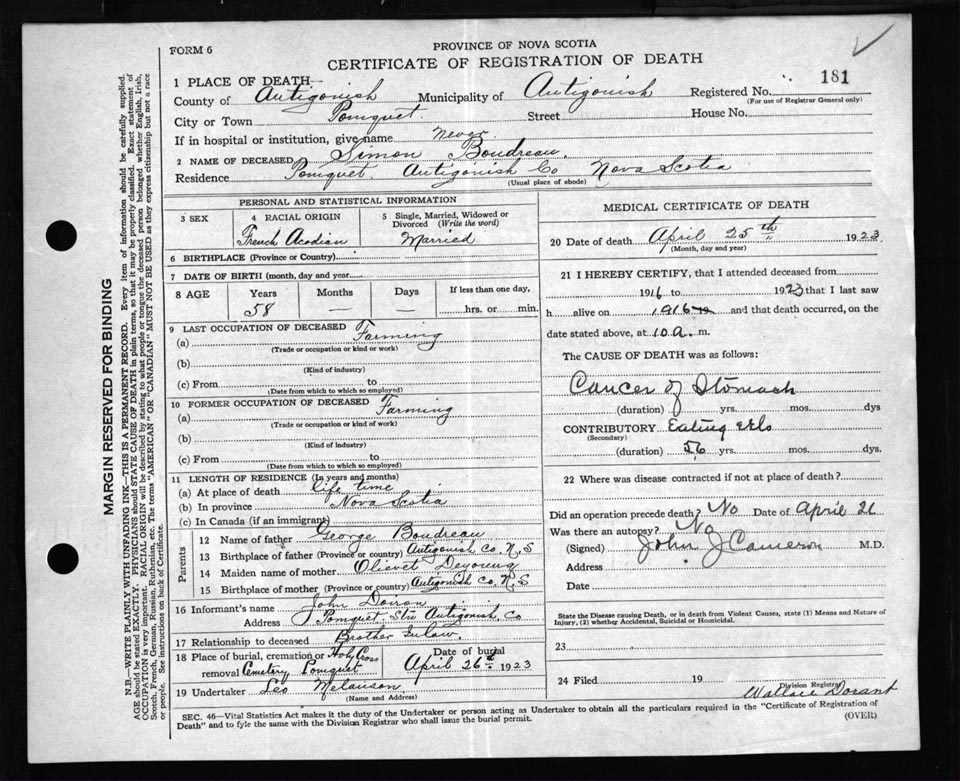 FORM 6
PROVINCE OF NOVA SCOTIA
CERTIFICATE OF REGISTRATION OF DEATH
181
1 PLACE OF DEATH—
County of Antigonish Municipality of Antigonish Registered No.
(For use of Registrar General only)
City or Town Pomquet Street House No.
If in hospital or institution, give name never
2 NAME OF DECEASED Simon Boudreau.
Residence Pomquet Antigonish Co Nova Scotia
(Usual place of abode)
PERSONAL AND STATISTICAL INFORMATION
3 SEX
4 RACIAL ORIGIN
French Acodian
5 Single, Married, Widowed or Divorced (Write the word)
Married
6 BIRTHPLACE (Province or Country)
7 DATE OF BIRTH (month, day and year)
8 AGE Years Months Days If less than one day,
58 — — hrs. or min.
9 LAST OCCUPATION OF DECEASED
(a) Farming
(Trade or occupation or kind of work)
(b)
(Kind of industry)
(c) From to
(Date from which to which so employed)
10 FORMER OCCUPATION OF DECEASED
(a) Farming
(Trade or occupation or kind of work)
(b)
(Kind of industry)
(c) From to
(Date from which to which so employed)
11 LENGTH OF RESIDENCE (In years and months)
(a) At place of death life time
(b) In province Nova Scotia
(c) In Canada (if an immigrant)
Parents
12 Name of father George Boudreau
13 Birthplace of father (Province or country) Antigonish Co. N, S
14 Maiden name of mother Olievet Deyoung
15 Birthplace of mother (Province or country) Antigonish Co. N, S
16 Informant's name John Doiron
Address Pomquet Stn Antigonish Co
17 Relationship to deceased Brother Inlaw
18 Place of burial, cremation or removal Holy Cross Cemetery Pomquet
Date of burial
April 26th 1923
19 Undertaker Leo Melanson
(Name and Address)
MEDICAL CERTIFICATE OF DEATH
20 Date of death April 25th 1923
(Month, day and year)
21 I HEREBY CERTIFY, that I attended deceased from
1916 to 1923 that I last saw
h alive on 1916 and that death occurred, on
date stated above, at 10 a. m.
The CAUSE OF DEATH was as follows:
Cancer of Stomach
(duration) yrs. mos. dys
CONTRIBUTORY Eating
(Secondary)
(duration) yrs. mos. dys.
22 Where was disease contracted if not at place of death?
Did an operation precede death? No Date of April 26
Was there an autopsy? No
(Signed) John J Cameron M.D.
Address
Date
State the Disease causing Death, or in death from Violent Causes, state (1) Means and Nature of
Injury, (2) whether Accidental, Suicidal or Homicidal.
23
24 Filed 19
Division Registrar
Wallace Dorant
SEC. 46—Vital Statistics Act makes it the duty of the Undertaker or person acting as Undertaker to obtain all the particulars required in the "Certificate of Registration of
Death" and to fyle the same with the Division Registrar who shall issue the burial permit.
(OVER)
MARGIN RESERVED FOR BINDING
N.B.—WRITE PLAINLY WITH UNFADING INK—THIS IS A PERMANENT RECORD. Every item of information should be carefully supplied.
AGE should be stated EXACTLY. PHYSICIANS should STATE CAUSE OF DEATH in plain terms, so that it may be properly classified. Exact statement of
OCCUPATION is very important. RACIAL ORIGIN will be described by stating to what people or tongue the deceased person belonged whether English, Irish,
Scotch, French, German, Russian, Ruthenian, etc. The terms "AMERICAN" or "CANADIAN" MUST NOT BE USED as they express citizenship but not a race
or people. See instructions on back of Certificate.